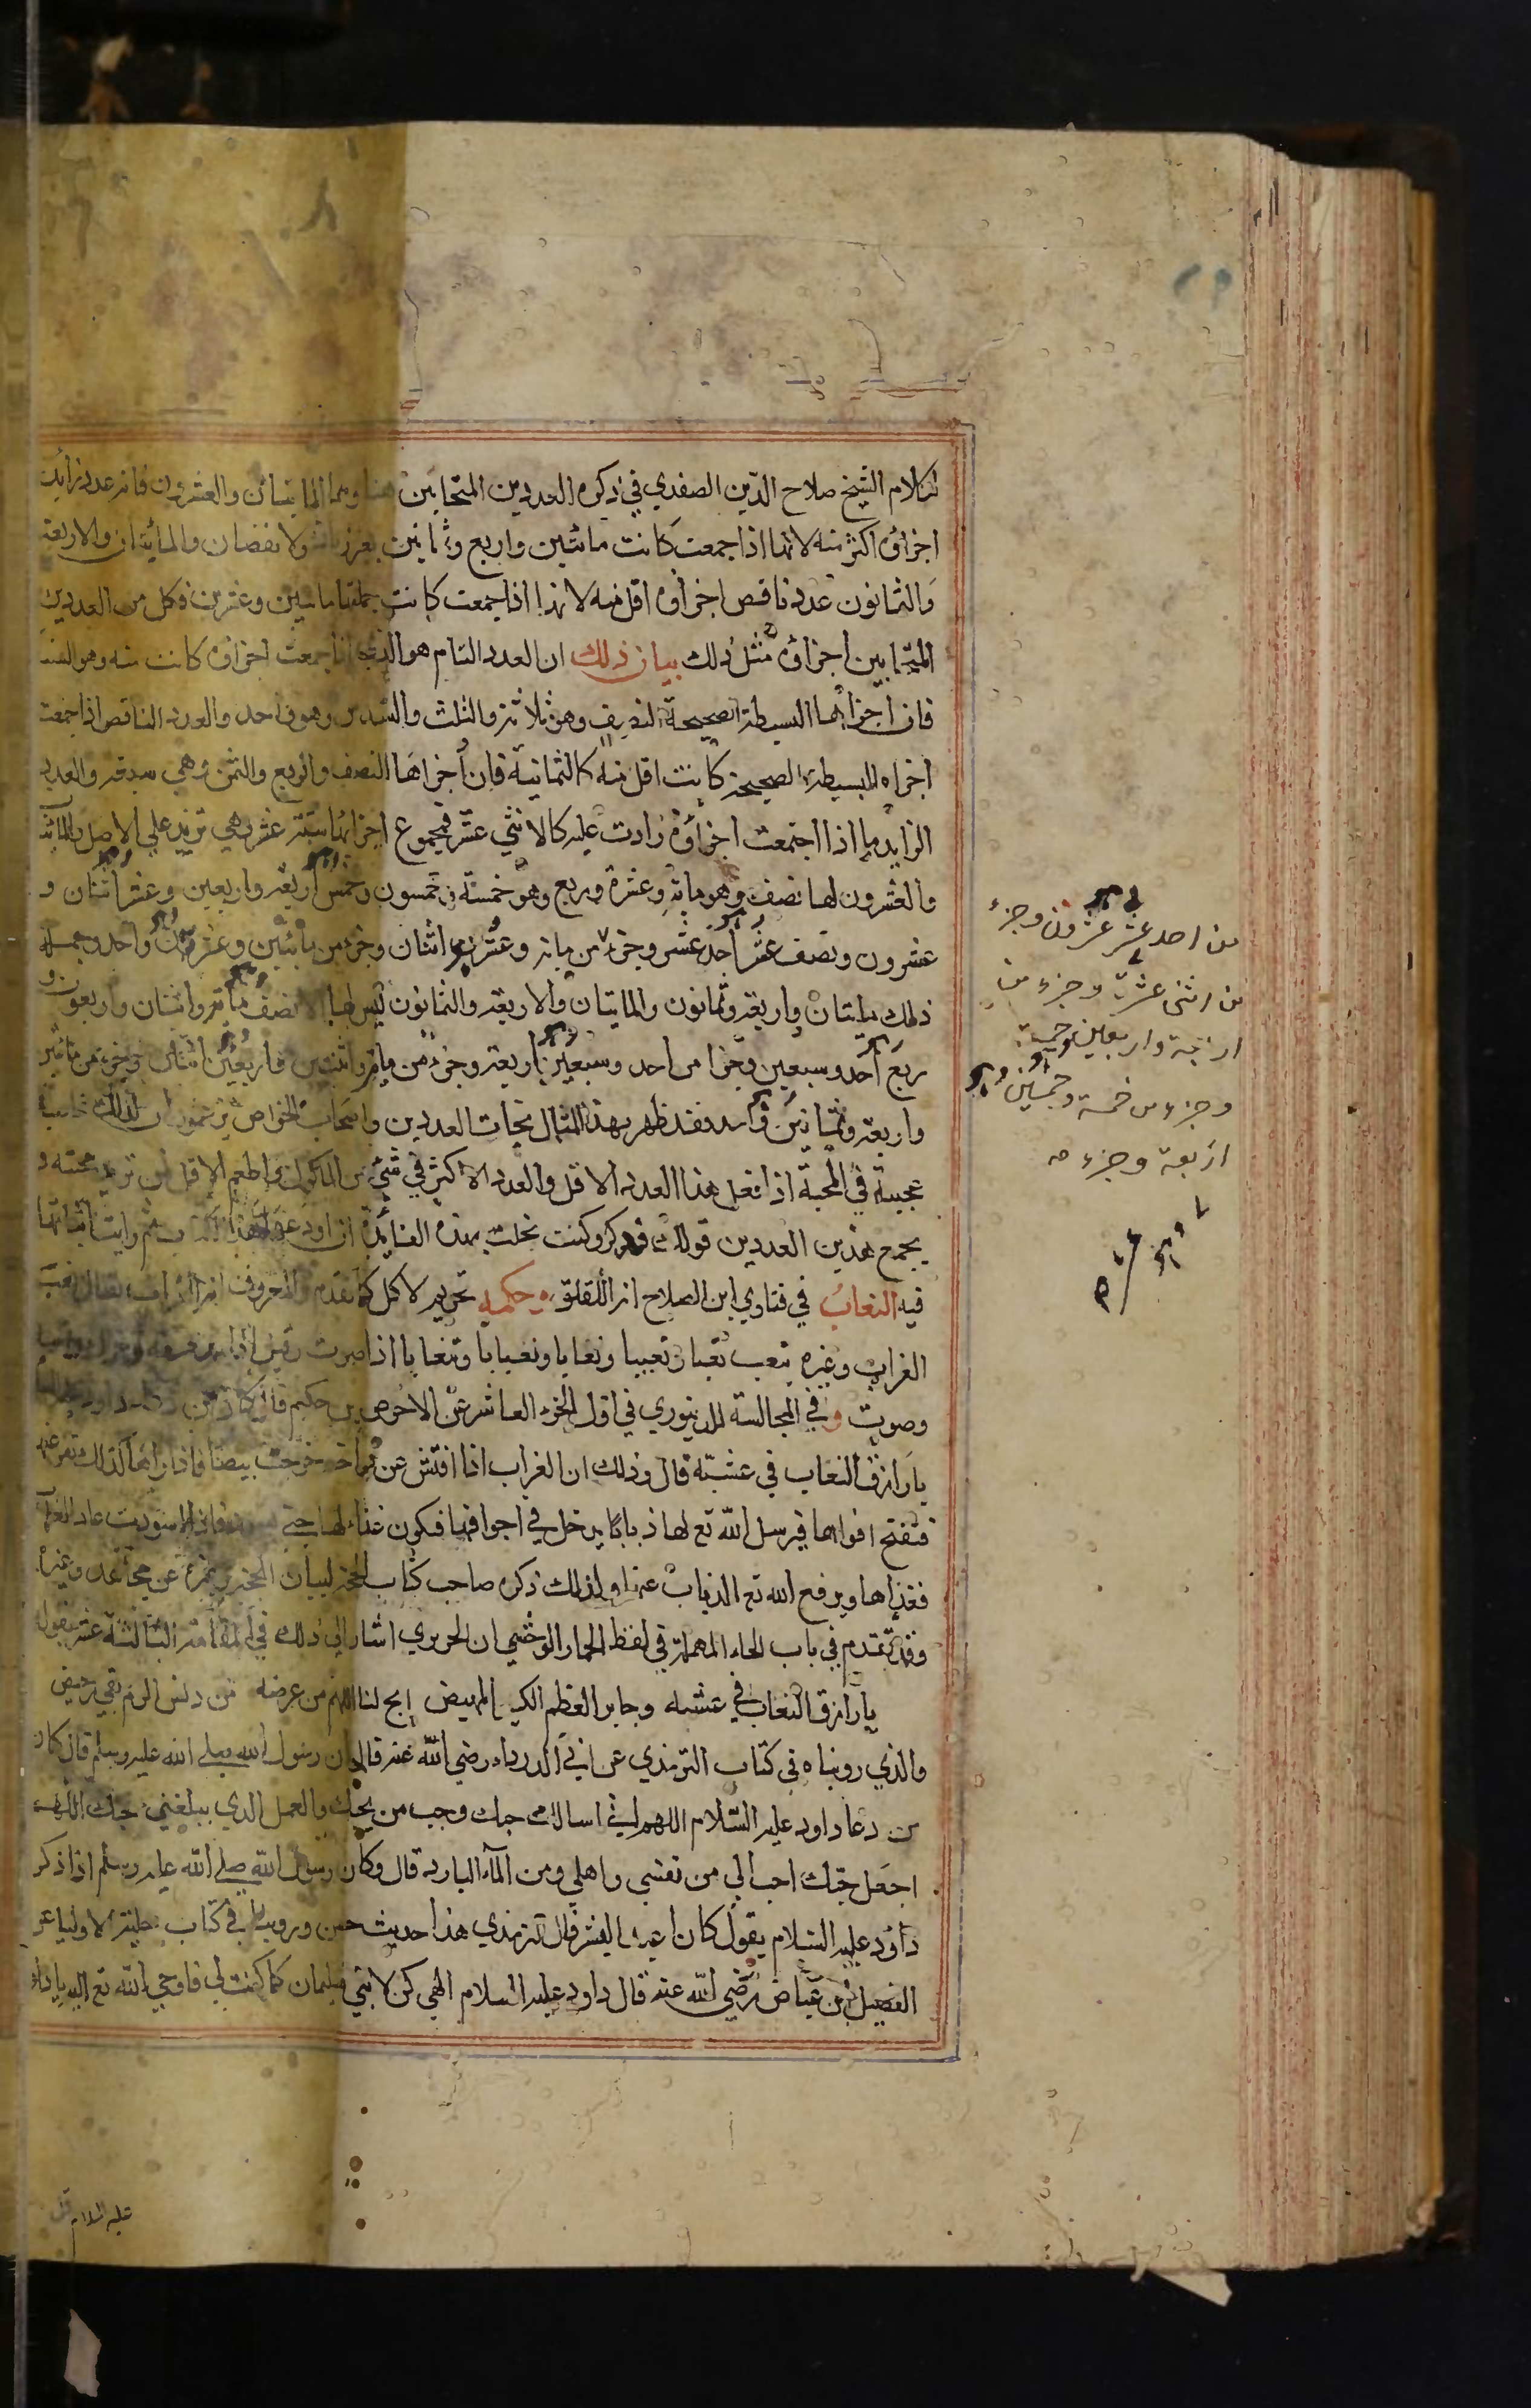 لكلام الشيخ صلاح الدين الصفدي في ذكره العددين المتحابين هنا وهما المايتان والعشرون فانه عدد زايد
اجزاؤه اكثر منه لانها اذا جمعت كانت مائتين واربع وثمانين بغير زيادة ولا نقصان والمائتان والاربعة
والثمانون عدد ناقص اجزاؤه اقل منه لانها اذا جمعت كانت جملتها مائتين وعشرين فكل من العددين
المتحابين اجزاؤه مثل ذلك بيان ذلك ان العدد التام هو الذي اذا جمعت اجزاؤه كانت مثله وهو الستة
فان اجزائها البسيطة الصحيحة النصف وهو ثلاثة والثلث والسدس وهو واحد والعدد الناقص اذا جمعت
اجزاه البسيطة الصحيحة كانت اقل منه كالثمانية فان اجزاها النصف والربع والثمن وهي سبعة والعدد
الزايد ما اذا اجتمعت اجزاؤه زادت عليه كالاثني عشر فمجموع اجزائها ستة عشر وهي تزيد علي الاصل والمائة
والعشرون لها نصف وهو مايه وعشرة وربع وهو خمسة وخمسون وخمس اربعة واربعين وعشر اثنان و
عشرون ونصف عشر احد عشر وجزء من مايه وعشرين اثنان وجزء من مائتين وعشرين واحد وجملة
ذلك مايتان واربعة وثمانون والمايتان والاربعة والثمانون ليس لها الا نصف مائة واثنان واربعون و
ربع احد وسبعين وجزا من احد وسبعين اربعة وجزء من ماية واثنين واربعين اثنان وجزء من مائتين
واربعة وثمانين واحد فقد ظهر بهذا المثال تحاب العددين واصحاب الخواص يزعمون ان لذلك خاصية
عجيبة في المحبة اذا تجعل هذا العدد الاقل والعدد الاكثر في شيء من الماكول واطعم الاقل لمن تريد محبته و
يجمع هذين العددين قولك فد كر وكنت نحلت بهذه الفائدة ان اودعها هذا الكتاب ثم رايت اثباتها
فيه النعاب في فتاوي ابن الصلاح انه اللقلق وحكمه تحريم لاكل كما تقدم والمعروف انه الغراب يقال نعب
الغراب وغيره ينعب نعبا ونعيبا ونعابا ونعبانا وتنعابا اذا صوت
وصوت وفي المجالسة للدينوري في اول الجزء العاشر عن الاحوص بن حكيم قال كان من دعاء داود عليه
يا رازق النعاب في عشه قال وذلك ان الغراب اذا افتش عن فراخه خرجت بيضا فاذا راها كذلك نفر عنها
فتفتح افواهها فيرسل الله تع لها ذبابا يدخل في اجوافها فيكون غذاء لها حتى تسود فاذا اسودت عاد الغراب
فغذاها ويرفع الله تع الذباب عنها ولذلك ذكره صاحب كتاب
وقد تقدم في باب الحاء المهملة في لفظ الحمار الوحشي ان الحريري اشار الي ذلك في المقامة الثالثة عشر بقول
يا رازق النعاب في عشه وجابر العظم الكسير المهيض اتح لنا اللهم من عرضه من دنس الذم نقي رحيض
والذي رويناه في كتاب الترمذي عن ابي الدرداء رضي الله عنه قال ان رسول الله صلي الله عليه وسلم قال كان
من دعا داود عليه السلام اللهم اني اسالك حبك وحب من يحبك والعمل الذي يبلغني حبك اللهم
اجعل حبك احب الي من نفسي واهلي ومن الماء البارد قال وكان رسول الله صلي الله عليه وسلم اذا ذكر
داود عليه السلام يقول كان اعبد البشر قال الترمذي هذا حديث حسن وروينا في كتاب حلية الاوليا عن
الفضيل بن عياض رضي الله عنه قال داود عليه السلام الهي كن لابني سليمان كما كنت لي فاوحي الله تع اليه يا داود
عليه السلام قل
من احد عشر عشرون وجزء
من اثنى عشر وجزء من
اربعة واربعين خمسة
وجزء من خمسة وخمسين
اربعة وجزء من